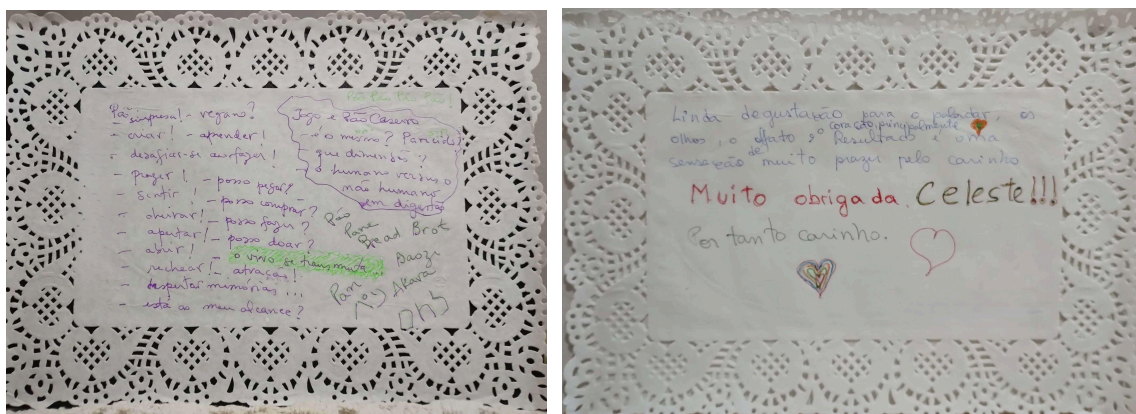 Pão
simpresa! - vegano?
- criar! - aprender!
- desafiar-se a fazer!
- prazer! - posso pegar?
- sentir - posso comprar?
- cheirar! - posso fazer?
- apertar! - posso doar?
- abrir! - o vivo se transmuta
- rechear! - atraças!
- despertar memórias...
- está ao meu alcance?
Jogo e Pão Caseiro
- é o mesmo? Parecido?
que dimensão?
- o humano versus o
não humano
sem digestão
Pão
Pane
Bread Brot
Baozi
Pan
Akara
לחם
Linda degustação para o paladar, os
olhos, o olfato e o coração, principalmente
Resultado é uma
sensação de muito prazer pelo carinho
Muito obrigada, Celeste!!!
Por tanto carinho.